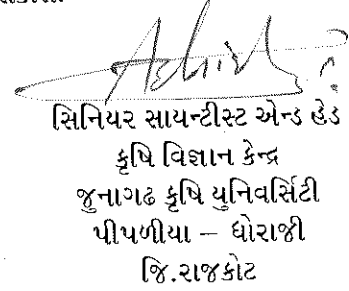 સિનિયર સાયન્ટીસ્ટ એન્ડ હેડ
કૃષિ વિજ્ઞાન કેન્દ્ર
જુનાગઢ કૃષિ યુનિવર્સિટી
પીપળીયા – ધોરાજી
જિ.રાજકોટ